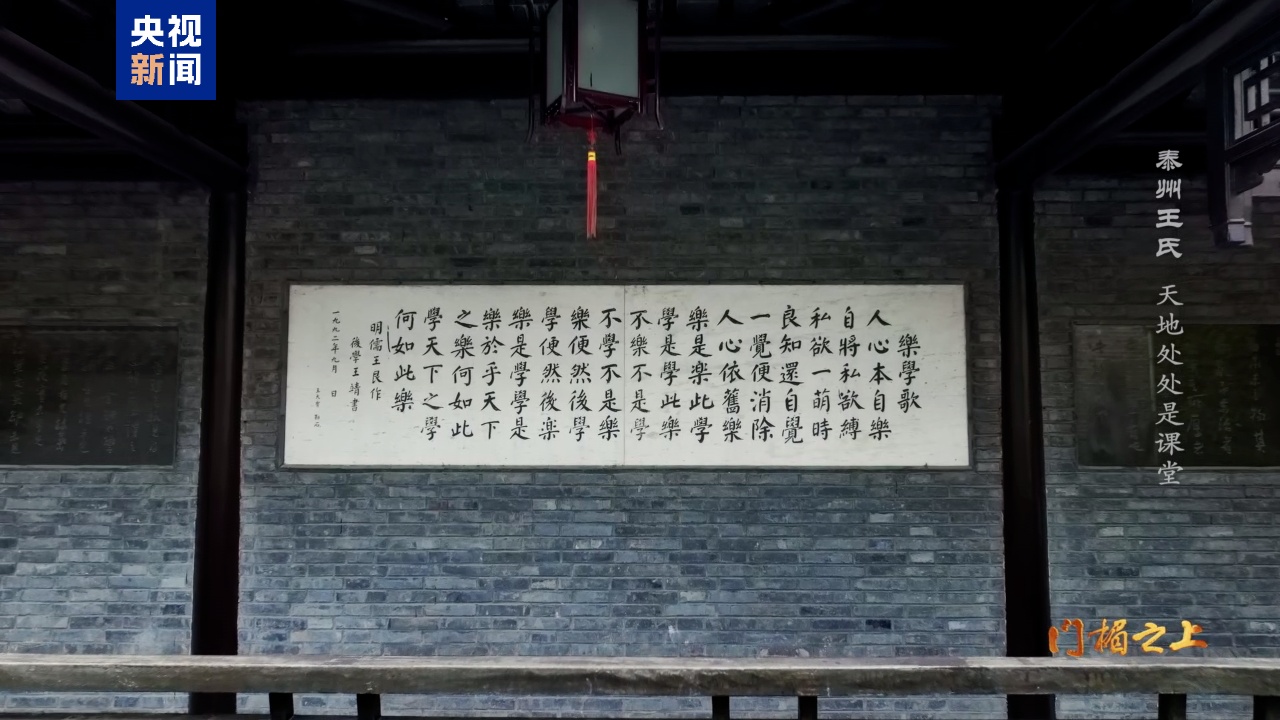 央视
新闻
泰州王氏 天地处处是课堂
樂學歌
人心本自樂
自將私欲縛
私欲一萌時
良知還自覺
一覺便消除
人心依舊樂
樂是楽此學
學是學此樂
不樂不是學
不學不是樂
樂便然後學
學便然後楽
樂是學學是
樂於乎天下
之樂何如此
學天下之學
何如此樂
明儒王艮作
後學王靖書
一九九二年九月 日
门楣之上